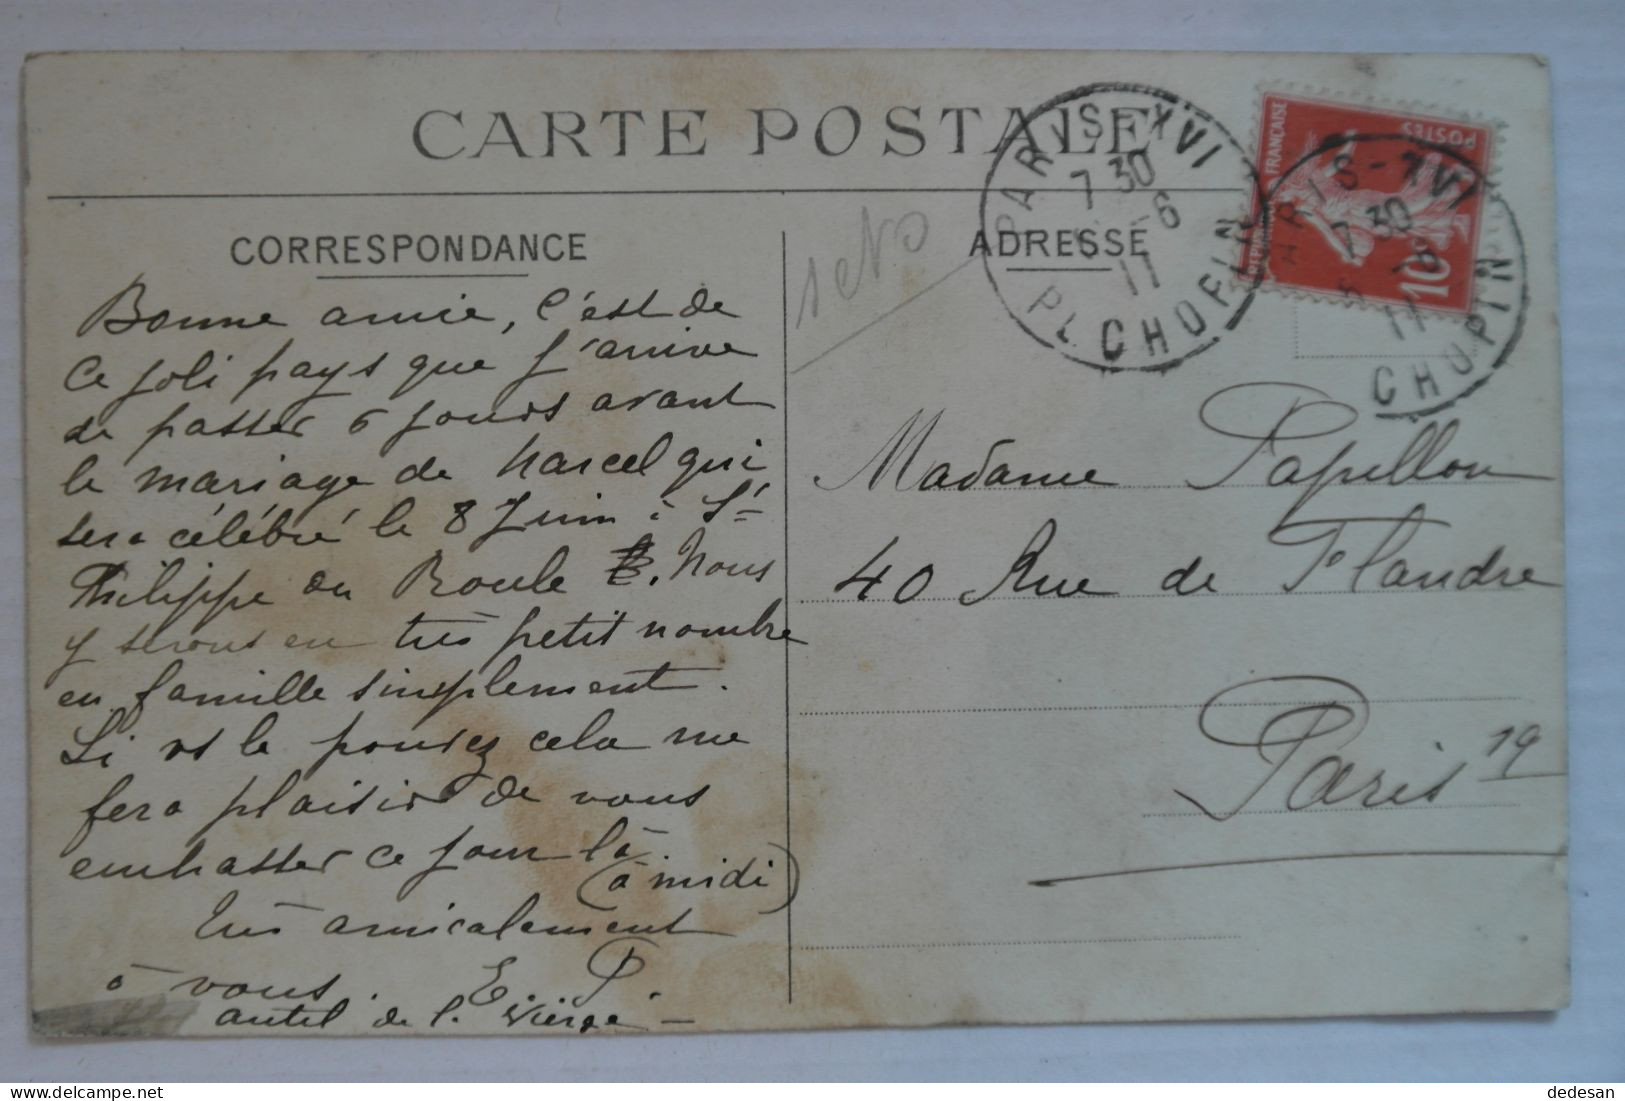 CARTE POSTALE
CORRESPONDANCE
Bonne amie, c'est de
ce joli pays que j'arrive
de passer 6 jours avant
le mariage de Marcel qui
sera célébré le 8 Juin à St
Philippe du Roule. Nous
y serons en très petit nombre
en famille simplement.
Si vs le pouvez cela me
fera plaisir de vous
embrasser ce jour là
(à midi)
Très amicalement
à vous. E. P.
autel de la Vierge -
ADRESSE
Madame Papillon
40 Rue de Flandre
Paris 19
PARIS-XVI
7 30
-6
11
PL CHOPIN
REPUBLIQUE FRANÇAISE
POSTES
10c
PARIS-XVI
7 30
5 -6
11
CHOPIN
dedesan